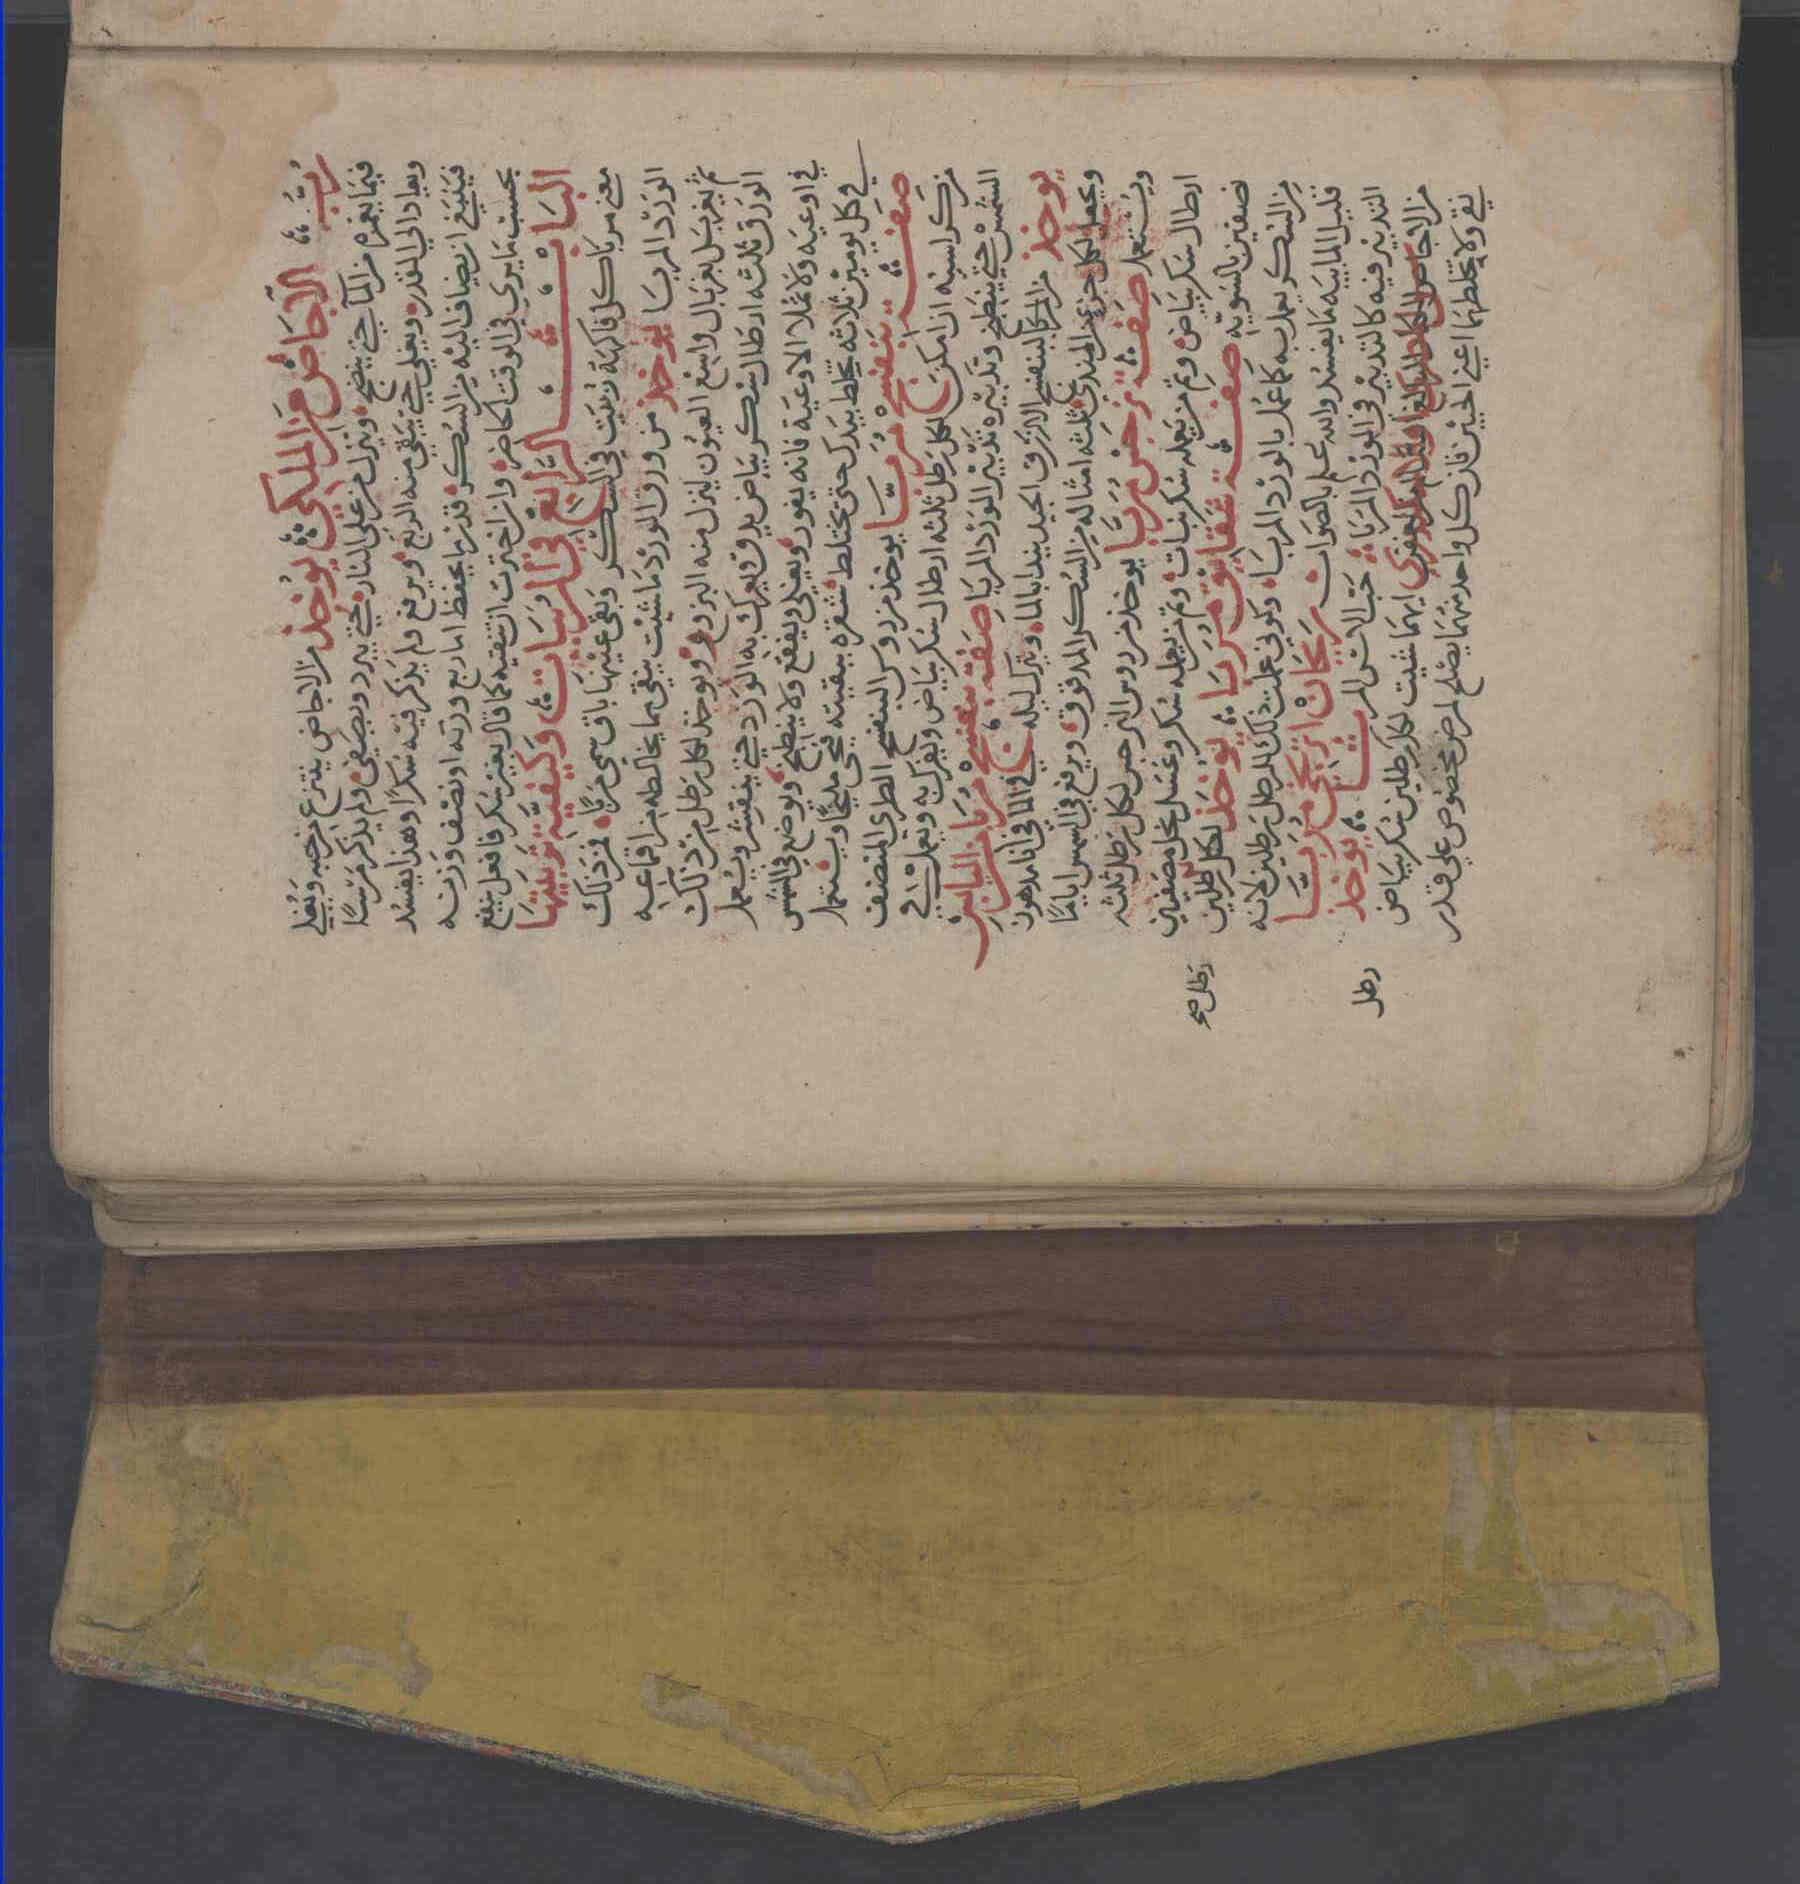 رُبّ الاجّاص من الملكي يُوخذ من الاجاص ينتزع من حبه ويغلي
فيما يغمره من المآ حتي ينضج وينزل من علي النار حتي يبرد ويصفي ولم يذكر مرسًا
ويعاد الي القدر ويغلي حتي يبقي منه الربع ويرفع ولم يذكر فيه سكرًا وهذا يفسد
فينبغي ان يضاف اليه من السكر قدر ما يحفظ اما ربع وزنه او نصف وزنه
بحسب ما يري في الوقت الحاضر وان اخترت ان تبقيه كما قال بغير سكر فافعل ينفع
الباب الرابع في المربّيات وكيفيّة تربيتها
معني مربا كل فاكهة رُبّيت في السكر وبقي عينها باق سمي مربًّا فمن ذلك
الورد المربا يوخذ من ورق الورد ما شيت ينقي مما يخالطه من اقماعه
ثم يغربل بغربال واسع العيون لينزل منه البزر ويوخذ لكل رطل من ذلك
الورق ثلثه ارطال سكر بياض يدق ويعرك به الورد حتي يتقشر ويعمل
في اوعيه ولا تملا الاوعية فانه يفور ويغلي ويقفع ولا ينطبخ ويوضع في الشمس
في كل يومين ثلاثه تخلط بيدك حتى يختلط قشره ببقيته فيجي مليحًا ويستعمل
صفت بنفسج مربّا يوخذ من روس البنفسج الطري المنضف
من كراسيه ان امكن لكل رطل ثلثه ارطال سكر بياض ويفرك به ويعمل في
الشمس حتي ينطبخ وتدبيره تدبير الورد المربا صفة بنفسج مربا من اليابس
يوخذ من البنفسج الازرق الجيد يندا بالماء ويترك ليله في الماء في انا مدهون
ويجعل لكل جزء من المندي ثلثه امثاله من السكر المدقوق ويرفع في الشمس ايامًا
ويستعمل صفت نرجس مربّا يوخذ من روس النرجس لكل رطل ثلثه
ارطال سكر بياض وثم من يعمله سكر نبات وثم من يعمله سكر وعسل نحل مصفي
نصفين بالسويه صفت شقايق مربا يوخذ لكل رطلين رطل صح
من السكر يعمل به كما عمل بالورد المربا وكوني عملت ذلك للرطل رطلين لانه
قليل المائيه ما يفسد والله اعلم بالصواب ريحان اترنجي مربّا
التدبير فيه كالتدبير في الورد المربا حب الاس المربّا يوخذ رطل
من الاجاص ايهما شيت لكل رطلين سكر بياض
نقي ولا تخلطهما اعني الحبين فان كل واحد منهما يصلح لمرض مخصوص علي قدر